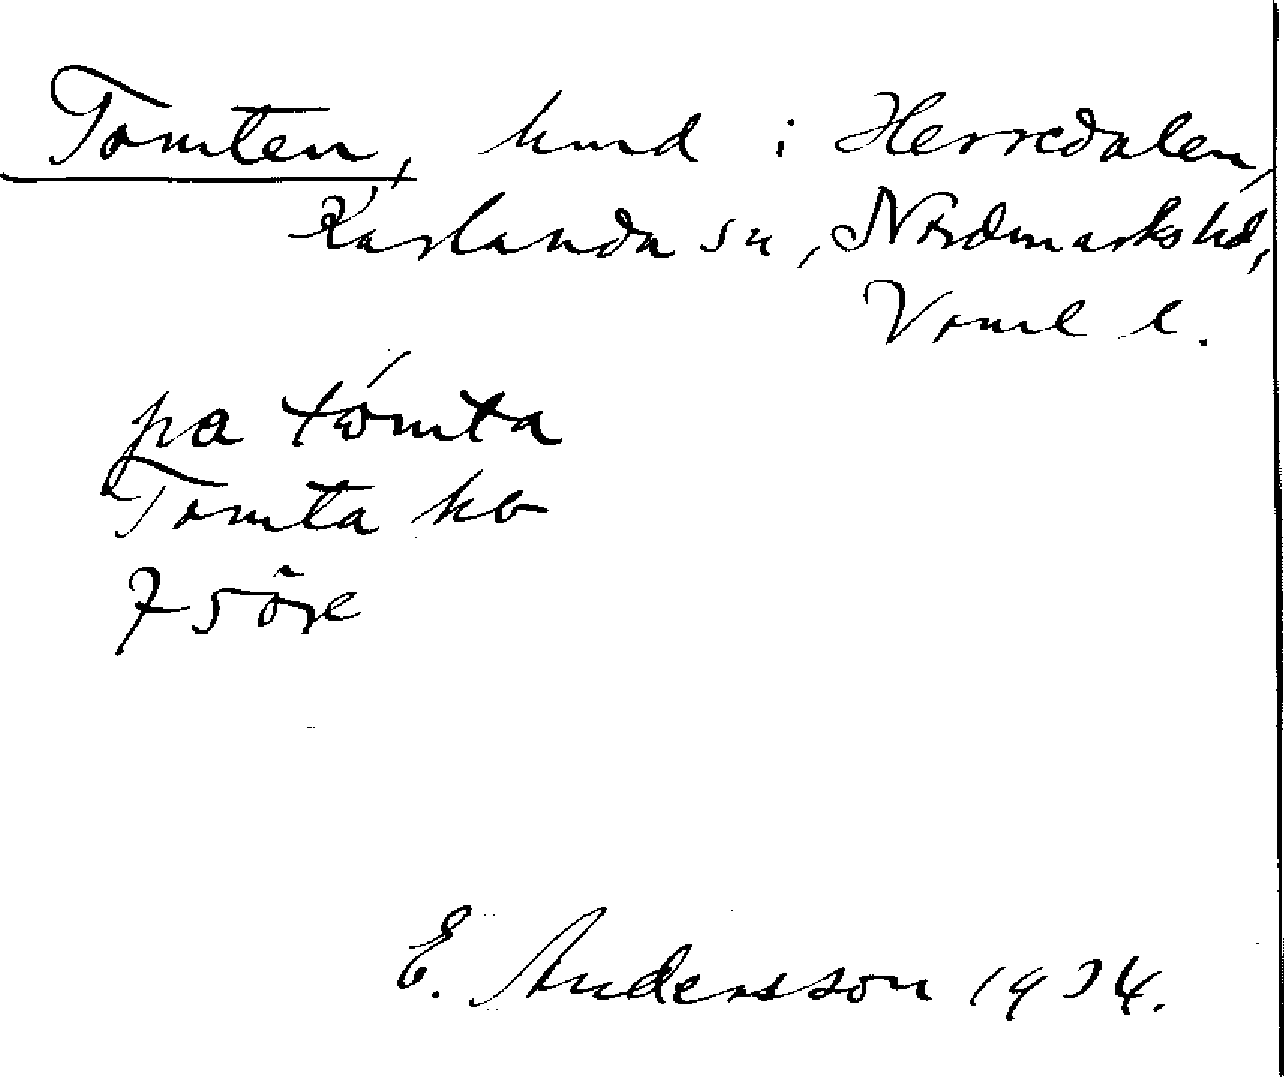 Tomten, hmd i Herredalen,
Karlanda sn, Nordmarks hd,
Vrml l.
pa tómta
Tomta kb
75 öre
E. Andersson 1934.